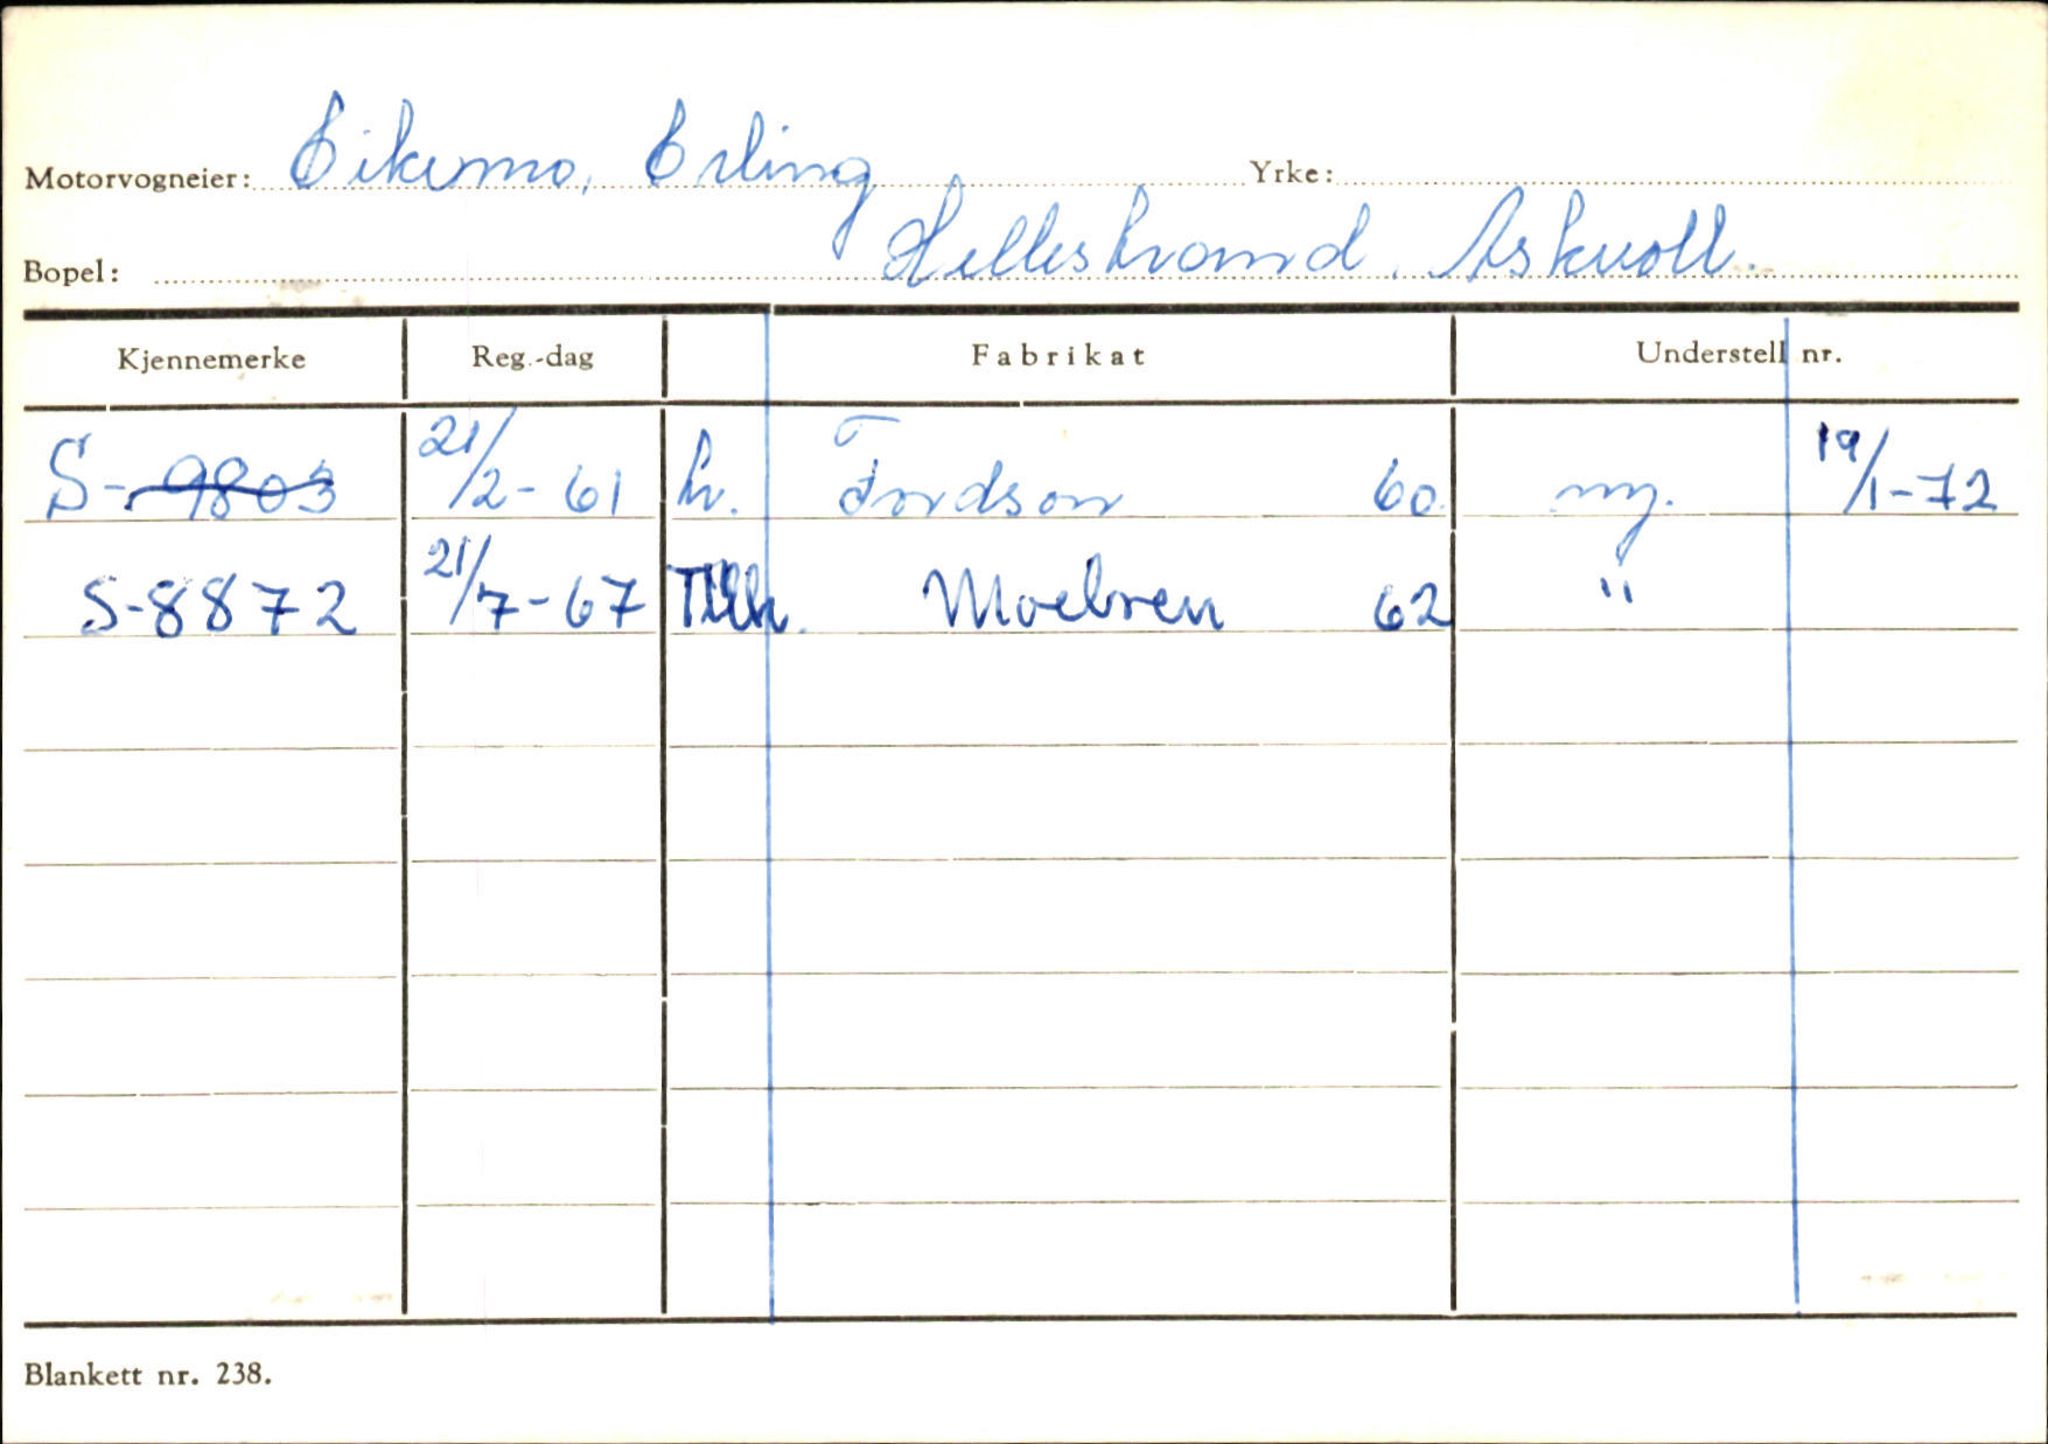 Motorvogneier: Eikemo, Erling Yrke:
Bopel: Hellestrand. Askvoll.
Kjennemerke Reg.-dag Fabrikat Understell nr.
S-9803 21/2-61 tr. Fordson 60 ny. 19/1-72
S-8872 21/7-67 Tilh. Moelven 62 "
Blankett nr. 238.